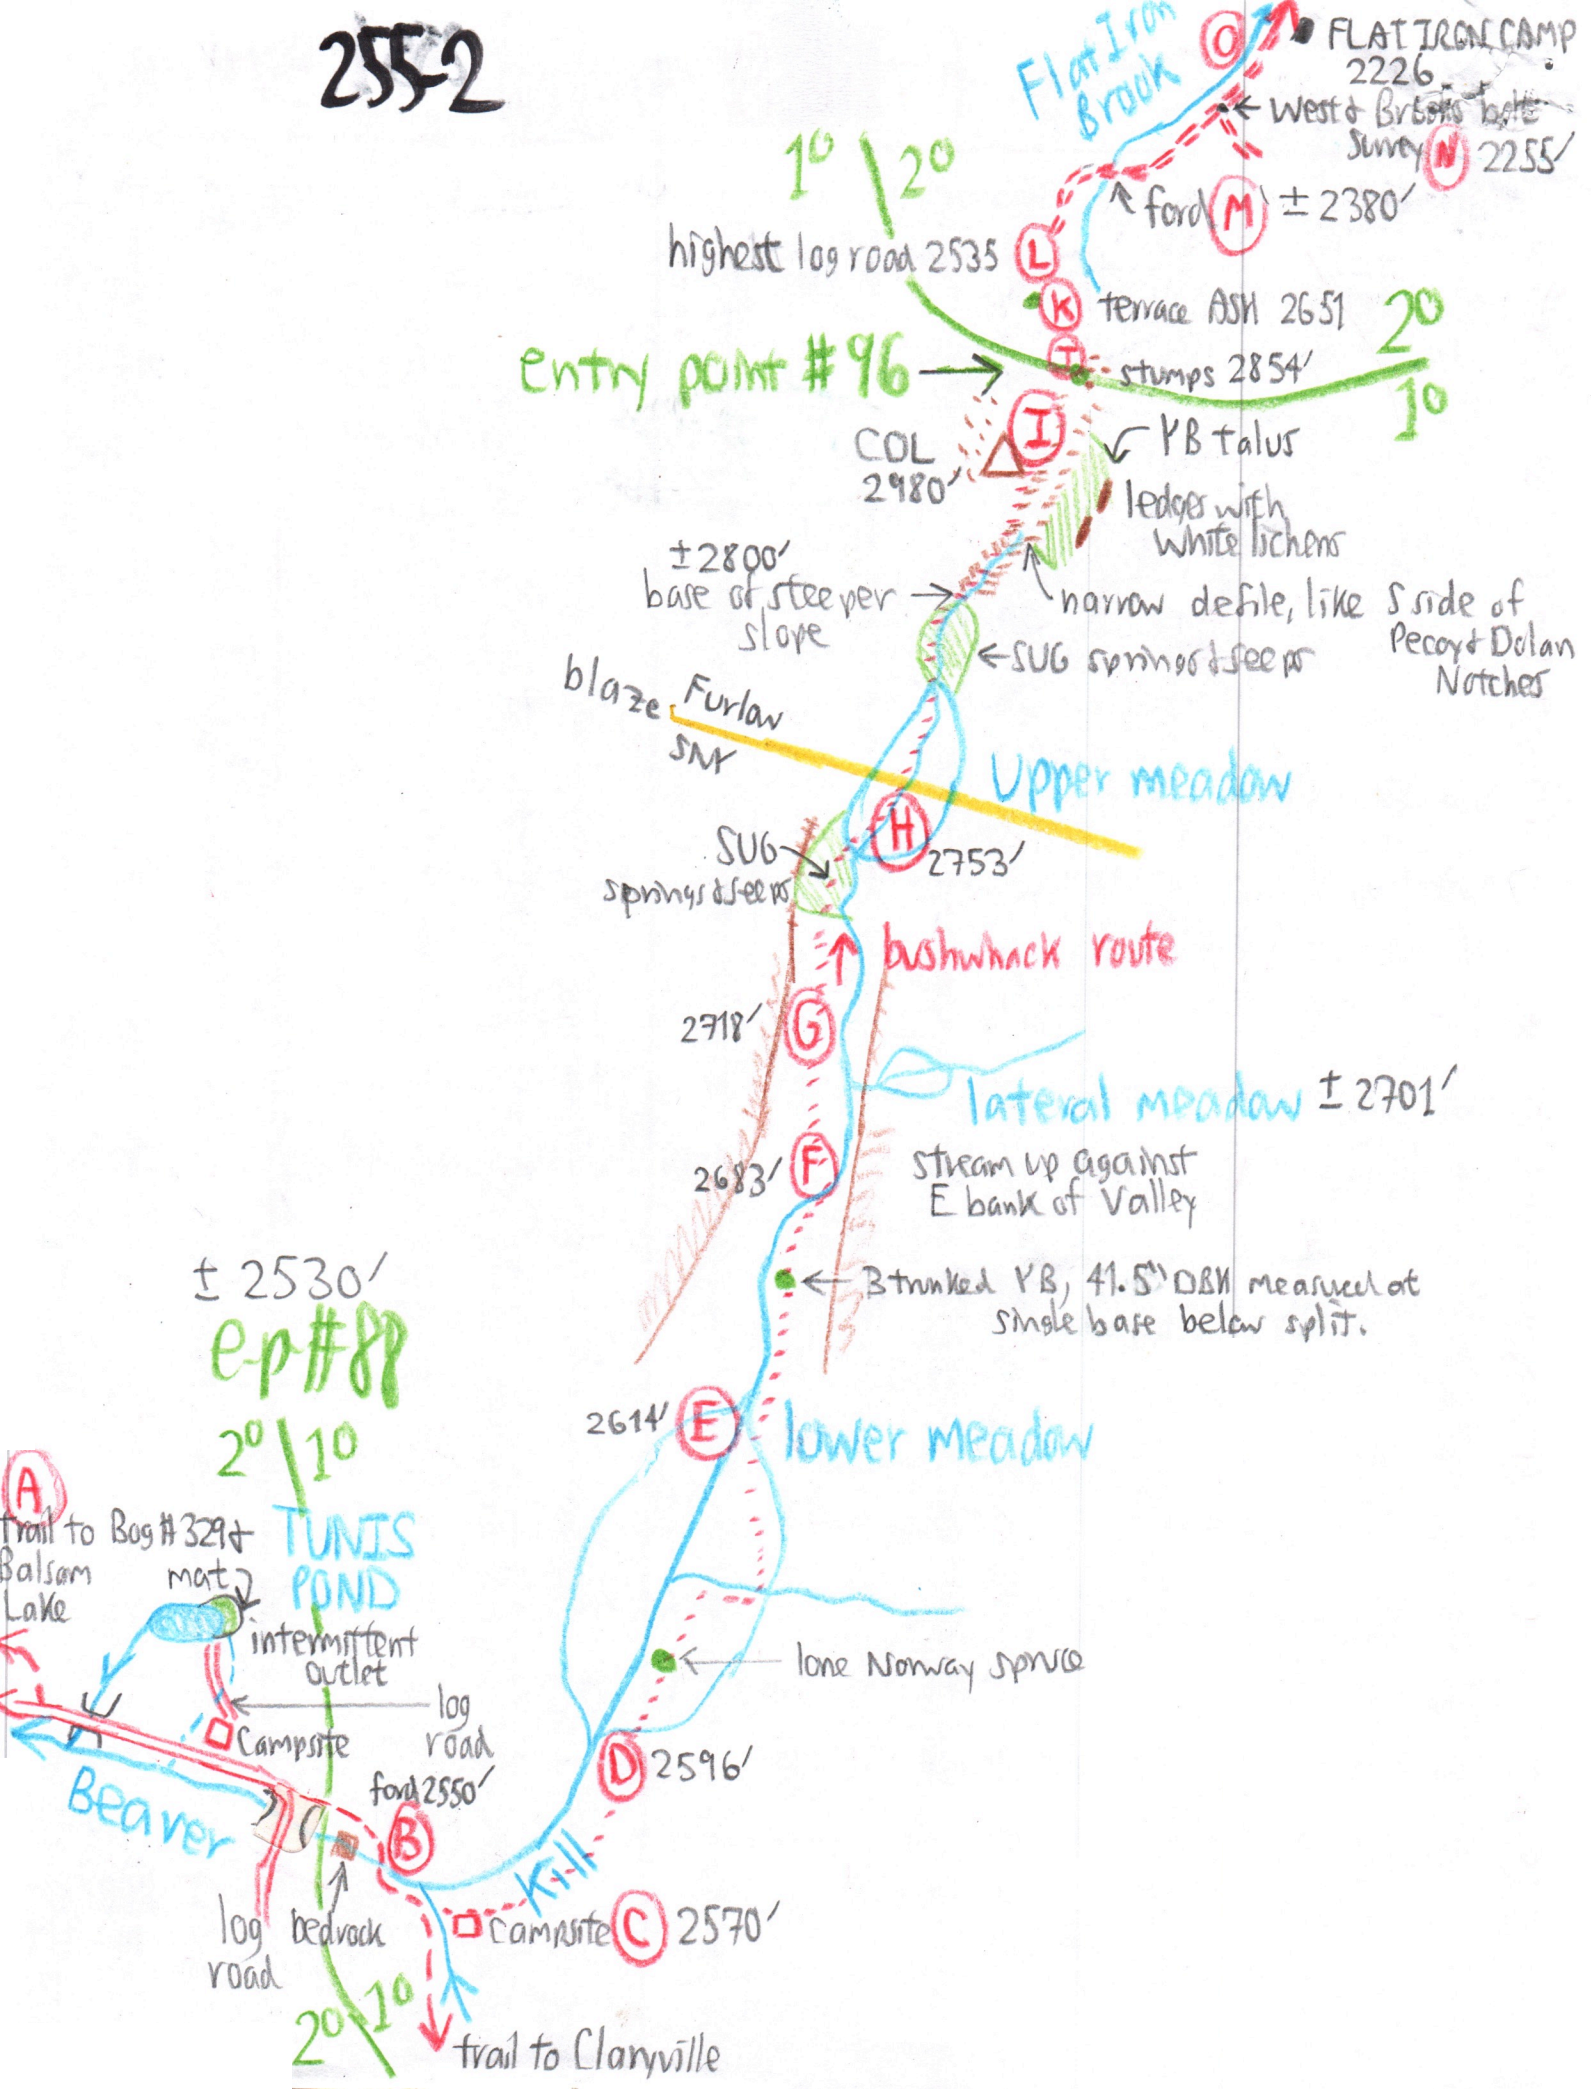 255-2
Flat Iron
Brook
O
FLAT IRON CAMP
2226
West & Brooks
survey N 2255'
1° 2°
ford M ± 2380'
highest log road 2535 L
K terrace ASH 2651
2°
entry point #96
J stumps 2854'
1°
I
COL
2980'
YB talus
ledges with
white lichens
±2800'
base of steeper
slope
narrow defile, like S side of
Pecoy & Dolan
Notches
SUG springs & seeps
blaze
Furlow
SNY
Upper meadow
H
2753'
SUG
springs & seeps
bushwhack route
2718' G
lateral meadow ± 2701'
2683' F
stream up against
E bank of Valley
± 2530'
ep #88
3 trunked YB, 41.5" DBH measured at
single base below split.
2614' E
lower meadow
2° 1°
A
trail to
Balsam
Lake
Bog #329 &
mat
TUNIS
POND
intermittent
outlet
lone Norway spruce
log
road
Campsite
D 2596'
ford 2550'
B
Beaver
Kill
log
road
bedrock
Campsite C 2570'
2° 1°
trail to Claryville